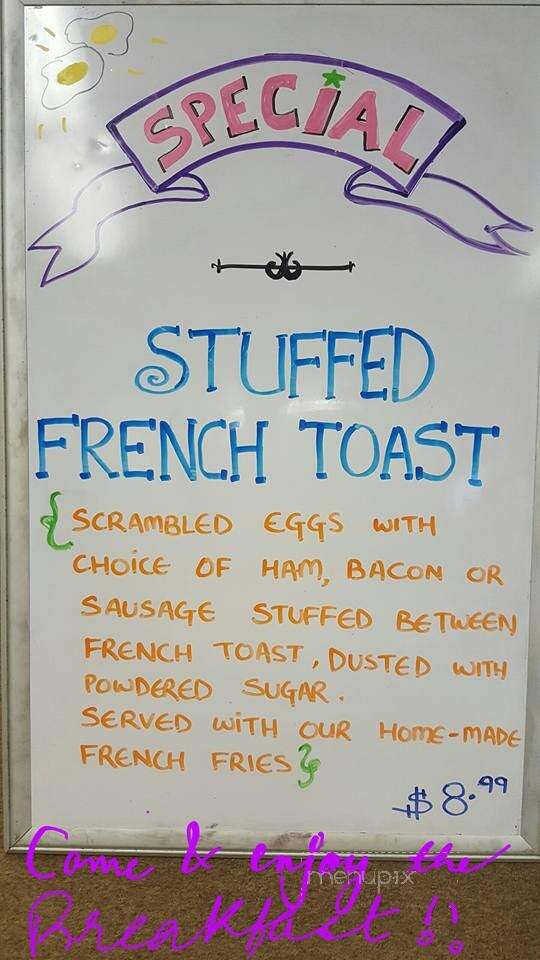 SPECiAL
STUFFED
FRENCH TOAST
{SCRAMBLED EGGS WiTH
CHOiCE OF HAM, BACON OR
SAUSAGE STUFFED BETWEEN
FRENCH TOAST, DUSTED WiTH
POWDERED SUGAR.
SERVED WiTH OUR HOME-MADE
FRENCH FRiES}
$8.99
Come & enjoy the
menupix
Breakfast!!